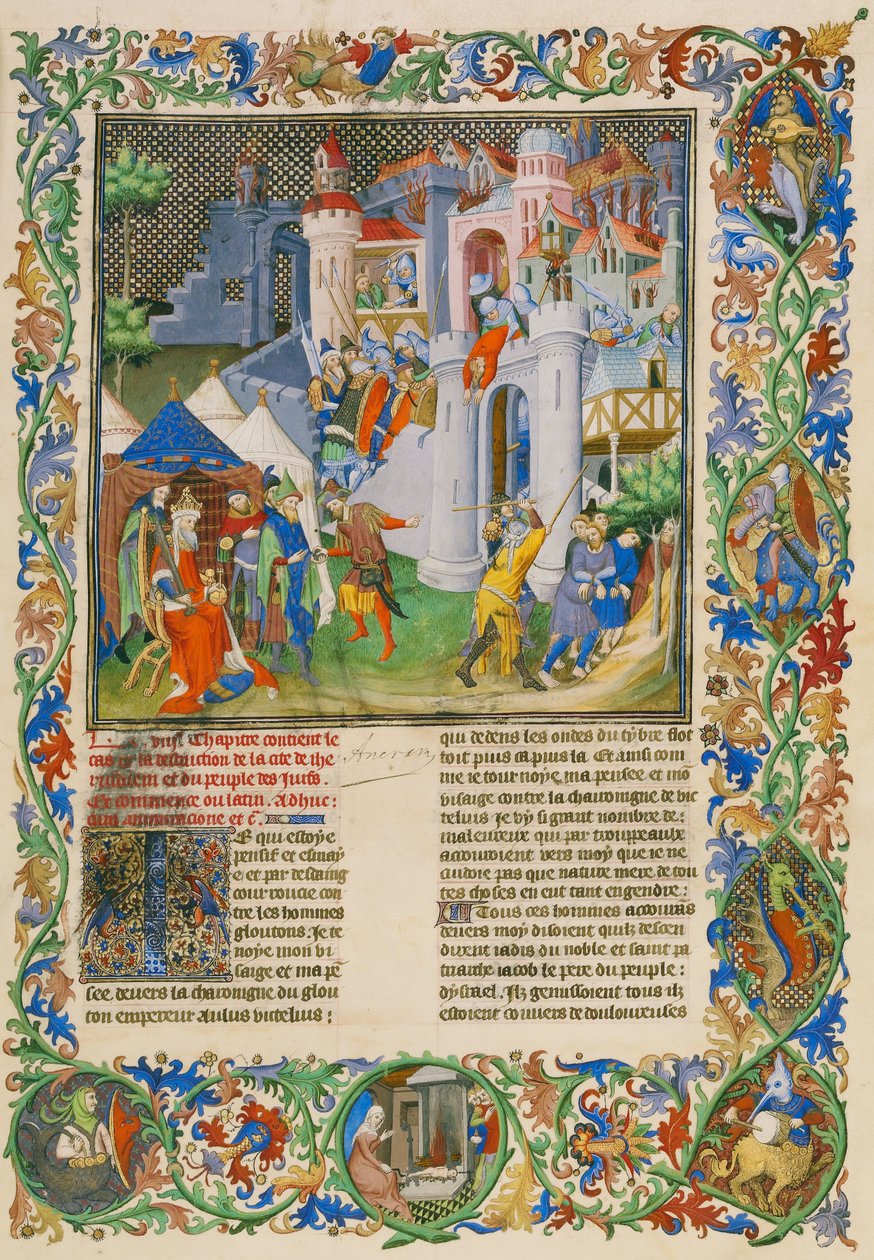 viiie Chapitre contient le
cas de la destruction de la cite de ihe
rusalem et du peuple des Juifs.
Et commence ou latin. Adhuc:
cum et c̃.
E qui estoye
pensif et esmay
e et par desdaing
courroucie con
tre les hommes
gloutons. Je te
noye mon vi
saige et ma pẽ
see devers la charoingne du glou
ton empereur Aulus victelius:
qui dedens les ondes du tybre flot
toit puis ca puis la. Et ainsi com
me ie tournoye ma pensee et mõ
visaige contre la charoingne de vic
telius ie vy si grant nombre de:
maleureux qui par troupeaulx
accouroient vers moy que ie ne
cuidoie pas que nature mere de tou
tes choses en eut tant engendre:
Tous ces hommes accourãs
devers moy disoient quilz descen
dirent iadis du noble et saint pa
triarche iacob le pere du peuple:
dysrael. Ilz gemissoient tous ilz
estoient couvers de douloureuses